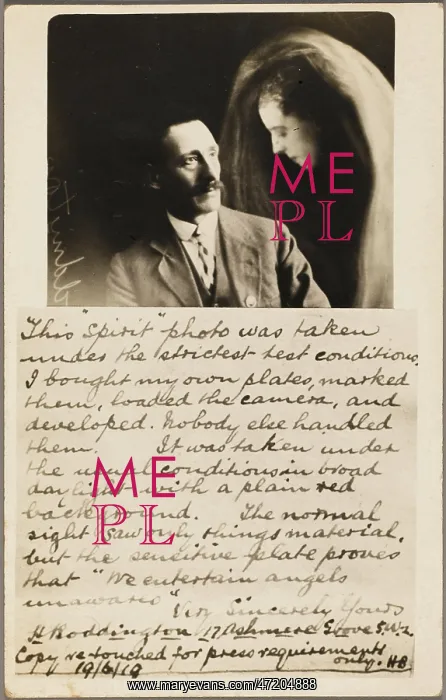 ME
PL
This "spirit" photo was taken
under the strictest test conditions.
I bought my own plates, marked
them, loaded the camera, and
developed. Nobody else handled
them. It was taken under
the usual conditions in broad
daylight with a plain red
background. The normal
sight saw only things material,
but the sensitive plate proves
that "We entertain angels
unawares"
Very Sincerely Yours
H Boddington 17 Ashmere Grove S.W.2.
Copy re-touched for press requirements
only. HB
19/6/19
ME
PL
www.maryevans.com/47204888